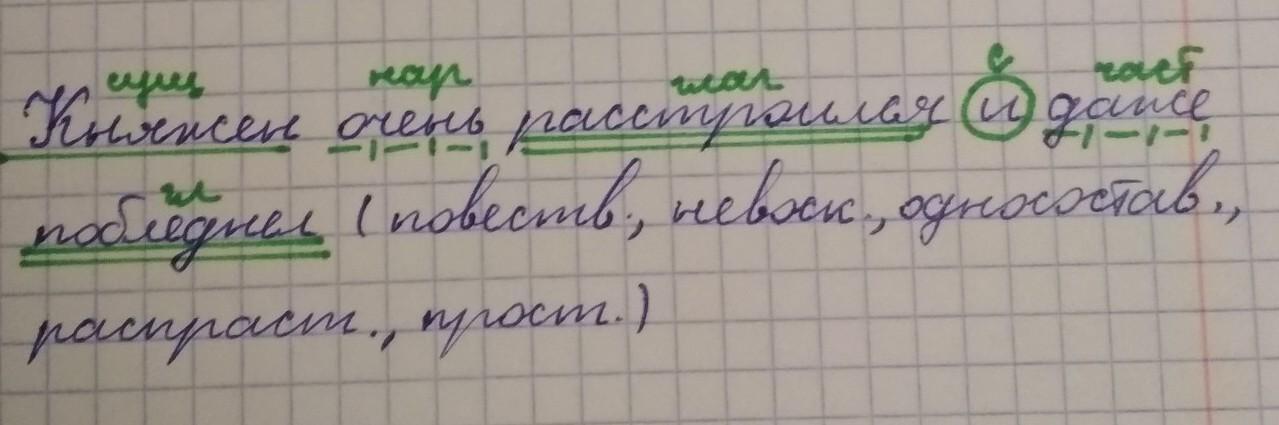 сущ нар глаг с част
Княжен очень расстроился и даже
гл
побледнел (повеств., невоск., односостав.,
распраст., прост.)